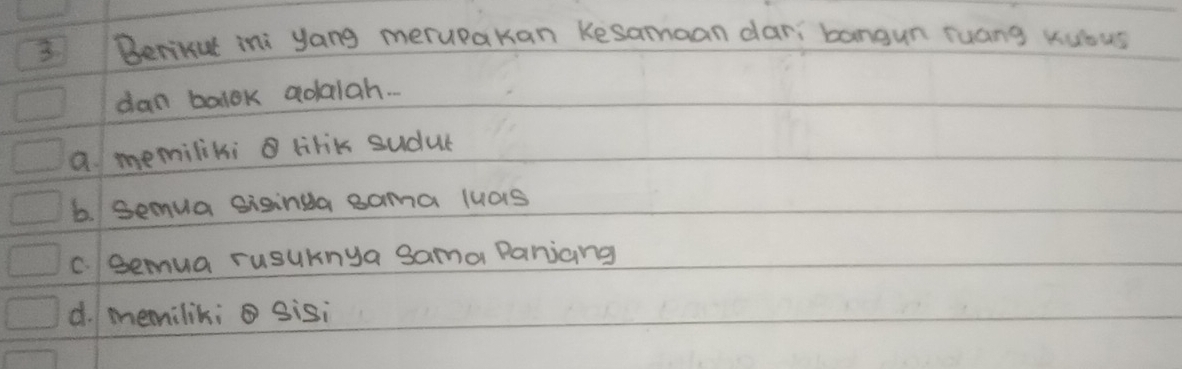 3. Berikut ini yang merupakan kesamaan dari bangun ruang kubus
dan balok adalah...
a. memiliki 8 titik sudut
b. semua sisinya sama luas
c. semua rusuknya sama panjang
d. memiliki 8 sisi